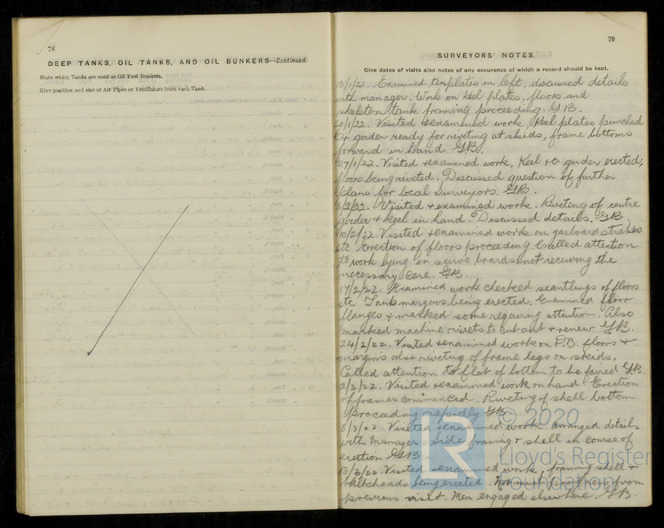 78
DEEP TANKS, OIL TANKS, AND OIL BUNKERS—Continued.
State which Tanks are used as Oil Fuel Bunkers.
Give position and size of Air Pipes or Ventilators from each Tank.
79
SURVEYORS' NOTES.
Give dates of visits also notes of any occurence of which a record should be kept.
13/1/22. Examined templates in loft; discussed details
with manager. Work on keel plates, floors and
skeleton tank framing proceeding. GB.
20/1/22. Visited & examined work, keel plates punched
& girder ready for riveting at skids, frame bottoms
forward in hand. GB.
27/1/22. Visited & examined work, Keel & girder erected;
floors being riveted. Discussed question of further
plans for local Surveyors. GB.
/2/22. Visited & examined work. Riveting of centre
girder & keel in hand. Discussed details. GB.
10/2/22. Visited & examined work on garboard strakes
etc. Erection of floors proceeding. Called attention
to work lying on scrive boards not receiving the
necessary care. GB.
17/2/22. Examined work checked scantlings of floors
etc. Tank margins being erected. Examined floor
flanges & marked some requiring attention. Also
marked machine rivets to cut out & renew. GB.
24/2/22. Visited & examined work on floors &
margins also riveting of frame legs on skids.
Called attention to flat of bottom to be faired GB.
2/3/22. Visited & examined work on hand. Erection
of frames commenced. Riveting of shell bottom
proceeding rapidly GB.
8/3/22. Visited work. Arranged details
with Manager. Side framing & shell in course of
erection GB.
13/3/22. Visited & examined work, framing shell &
bulkheads being erected. from
previous visit. Men engaged elsewhere. GB.
© 2020
Lloyd's Register
Foundation